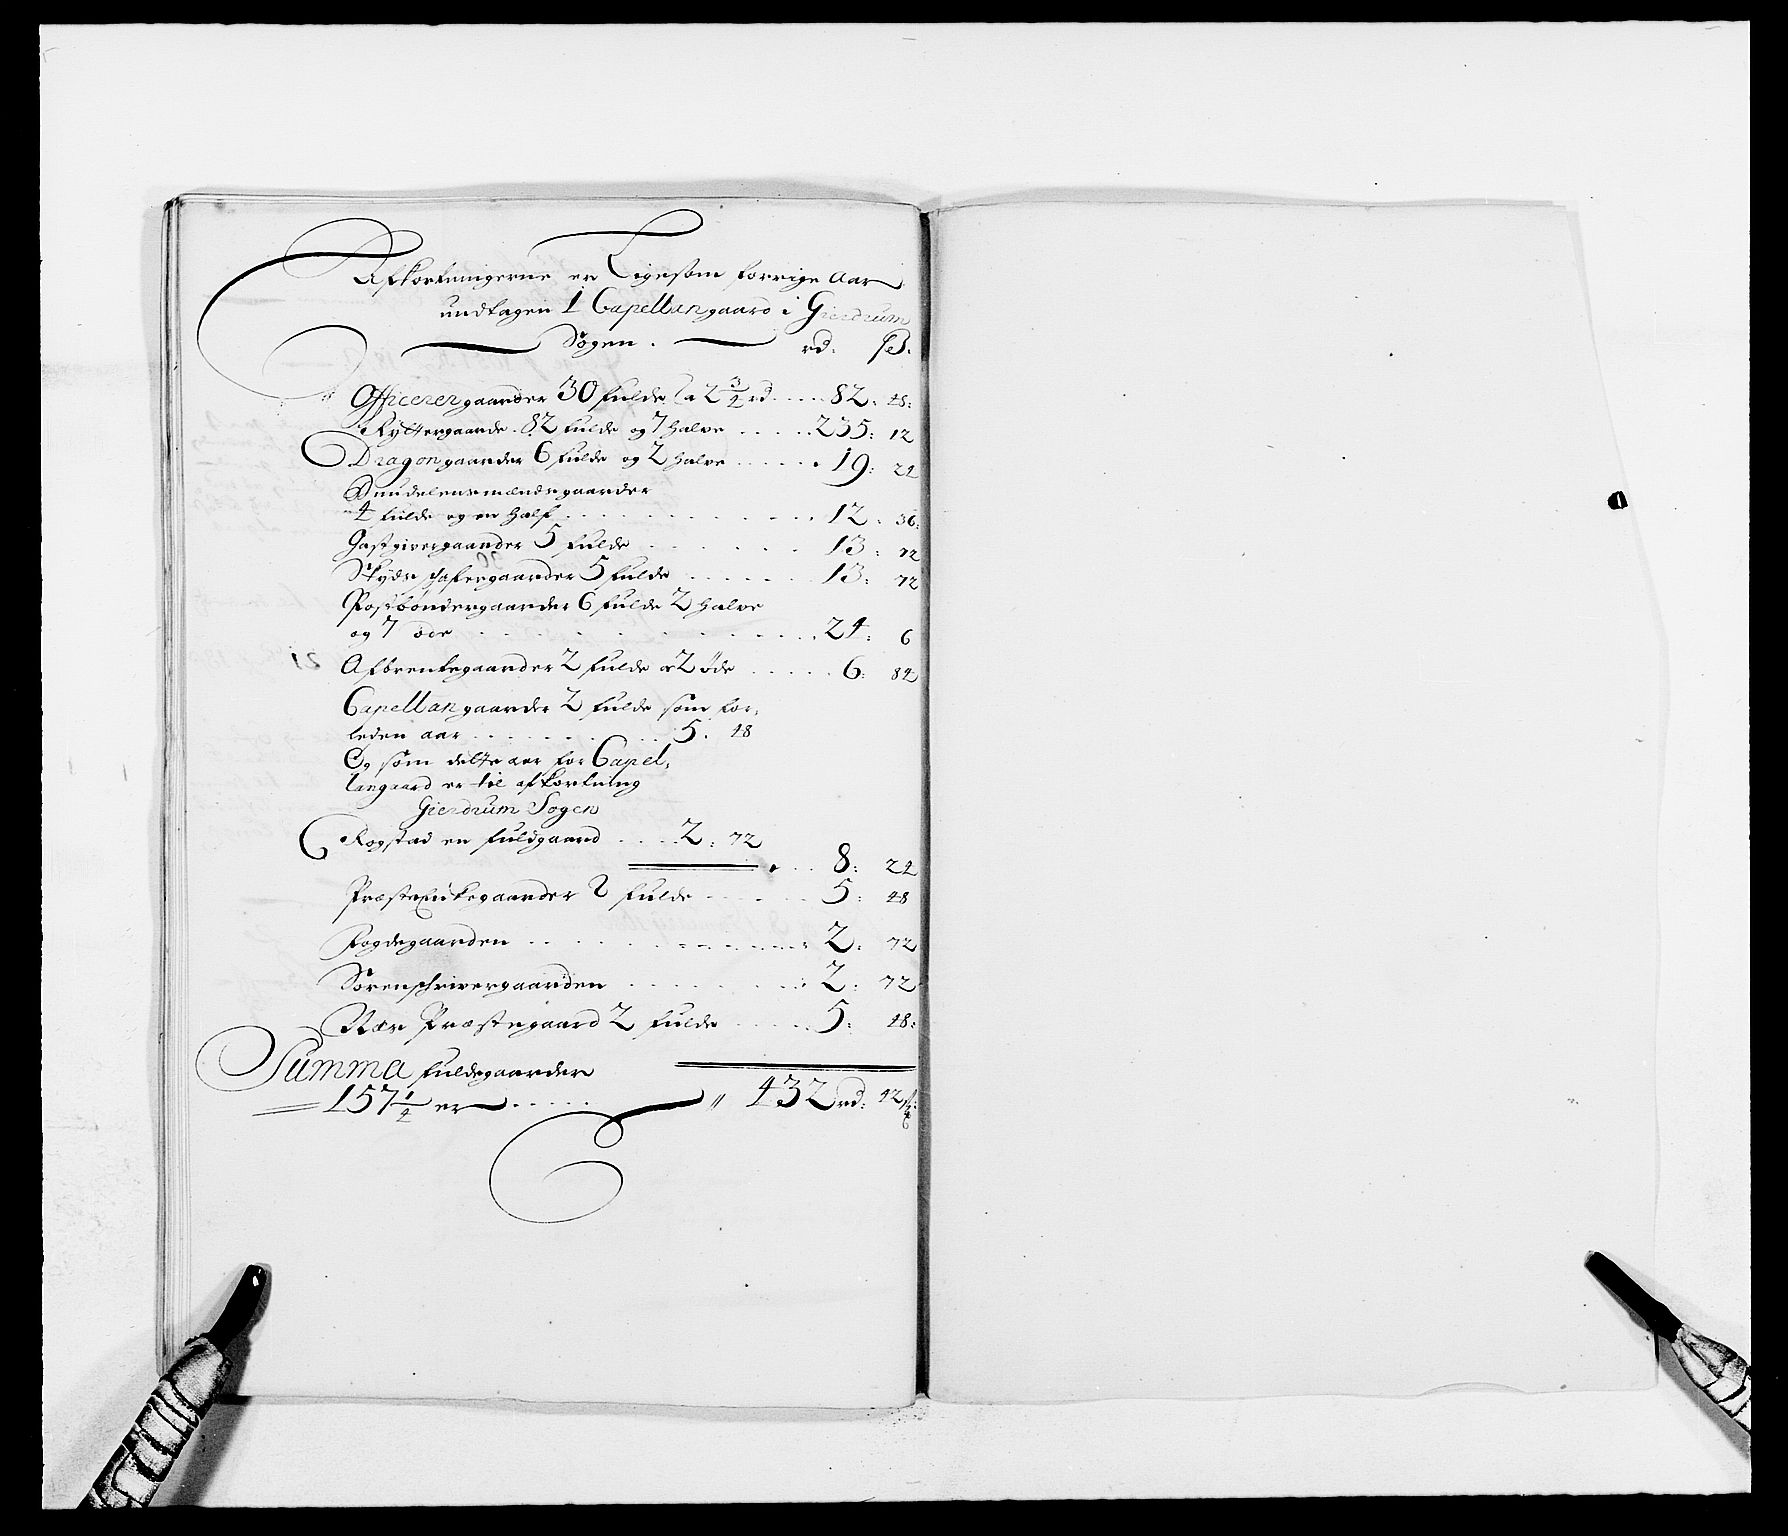 Afkortningerne er Ligesom forrige Aar
undtagen 1 Capellangaard i Gierdrum
Sogen. rd: sß:
Officerergaarder 30 fulde, a 2 3/4 rd .... 82: 48:
Ryttergaarde 82 fulde og 7 halve ..... 235: 12
Dragongaarder 6 fulde og 2 halve ...... 19: 24
Bundelensmændsgaarder
4 fulde og en half ........ 12: 36:
Gastgivergaarder 5 fulde ...... 13: 72
Skyds gaarder 5 fulde ...... 13: 72
Postbøndergaarder 6 fulde 2 halve
og 7 øde ........ 24: 6
Afbrentegaarder 2 fulde or 2 øde ..... 6: 84
Capellangaarder 2 fulde som for-
leden aar ........ 5: 48
Og som dette aar for Capel-
langaard er til afkortning
Gierdrum Sogen
Rogstad en fuldgaard .... 2: 72
8: 24
PræsteEnkegaarder 2 fulde ...... 5: 48
Fogdegaarden ......... 2: 72
Sorenschrivergaarden ....... 2: 72
Næs Præstegaard 2 fulde ..... 5: 48:
Summa fuldegaarder
157 1/4 er ..... 432 rd: 42 sk: